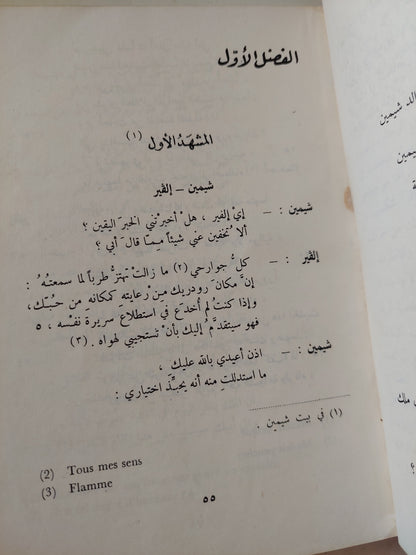 الفصل الأوّل
المشهدُ الأول (١)
شيمين – إلڤير
شيمين : — إيْ إلڤير ، هل أخبرْتني الخبرَ اليقين ؟
ألا تُخفين عني شيئاً ميمّا قالَ أبي ؟
إلڤير : — كلُّ جوارحي (٢) ما زالتْ تهتزُّ طرباً لما سمعتهُ :
إنَّ مكان رودريك مِنْ رعايته كمكانه مِن حُبّك ،
وإذا كنتُ لم أُخدَع في استطلاع سريرة نفسْه ، ٥
فهو سيتقدَّمُ إليك بأنْ تستجيبي لهواه . (٣)
شيمين : — اذن أعيدي بالله عليك ،
ما استدللتِ منه أنه يحبِّذُ اختياري :
(١) في بيت شيمين .
(2) Tous mes sens
(3) Flamme
٥٥
الله شيمين
شيمين
ملك
؟